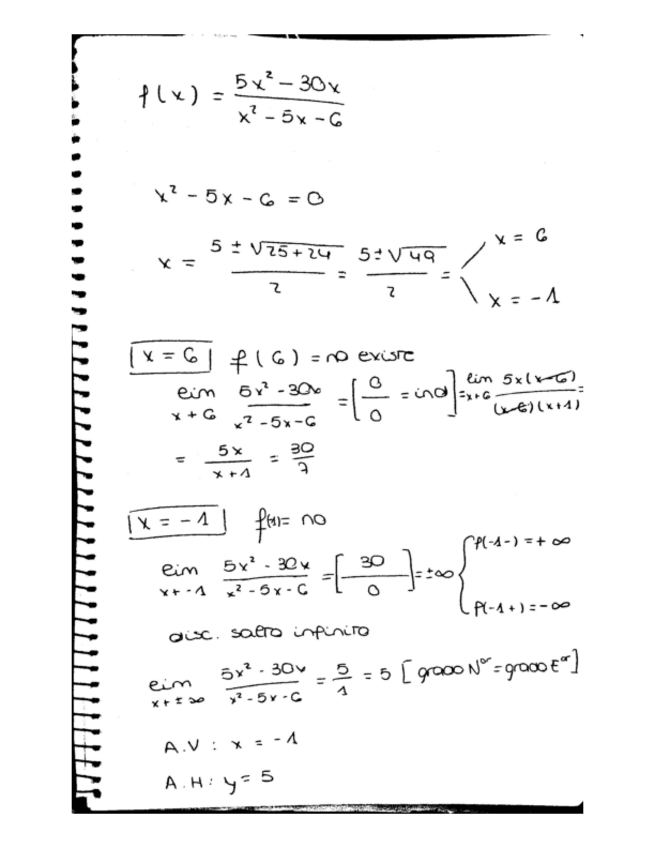 f(x) = (5x² - 30x) / (x² - 5x - 6)
x² - 5x - 6 = 0
x = (5 ± √25+24) / 2 = (5 ± √49) / 2 = x = 6
x = -1
x = 6 f(6) = no existe
lim x→6 (5x² - 30x) / (x² - 5x - 6) = [0/0 = ind] = lim x→6 5x(x-6) / (x-6)(x+1) =
= 5x / (x+1) = 30/7
x = -1 f(-1) = no
lim x→-1 (5x² - 30x) / (x² - 5x - 6) = [30/0] = ±∞ f(-1-) = +∞
f(-1+) = -∞
disc. salto infinito
lim x→±∞ (5x² - 30x) / (x² - 5x - 6) = 5/1 = 5 [grado Nºr = grado Eºr]
A.V : x = -1
A.H : y = 5